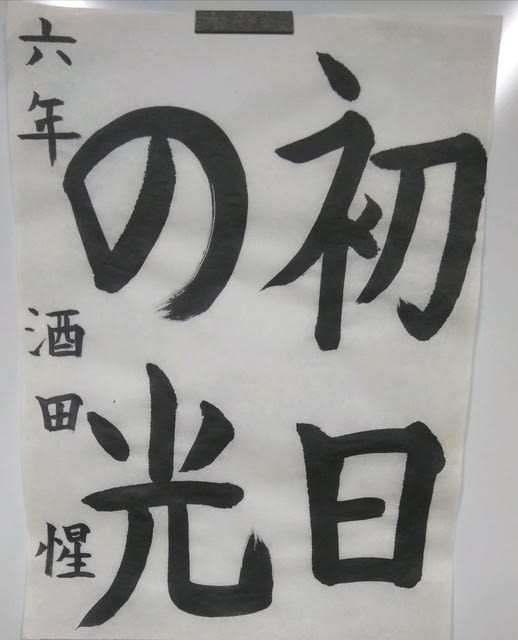 初日
の光
六年 酒田 惺